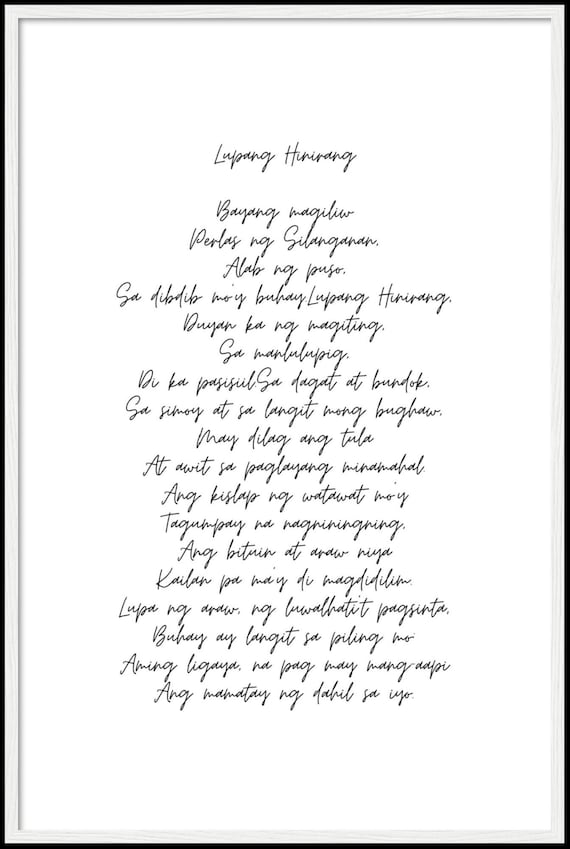 Lupang Hinirang
Bayang magiliw
Perlas ng Silanganan,
Alab ng puso,
Sa dibdib mo'y buhay.Lupang Hinirang,
Duyan ka ng magiting,
Sa manlulupig,
Di ka pasisiil.Sa dagat at bundok,
Sa simoy at sa langit mong bughaw,
May dilag ang tula
At awit sa paglayang minamahal.
Ang kislap ng watawat mo'y
Tagumpay na nagniningning,
Ang bituin at araw niya
Kailan pa ma'y di magdidilim.
Lupa ng araw, ng luwalhati't pagsinta,
Buhay ay langit sa piling mo
Aming ligaya, na pag may mang-aapi
Ang mamatay ng dahil sa iyo.